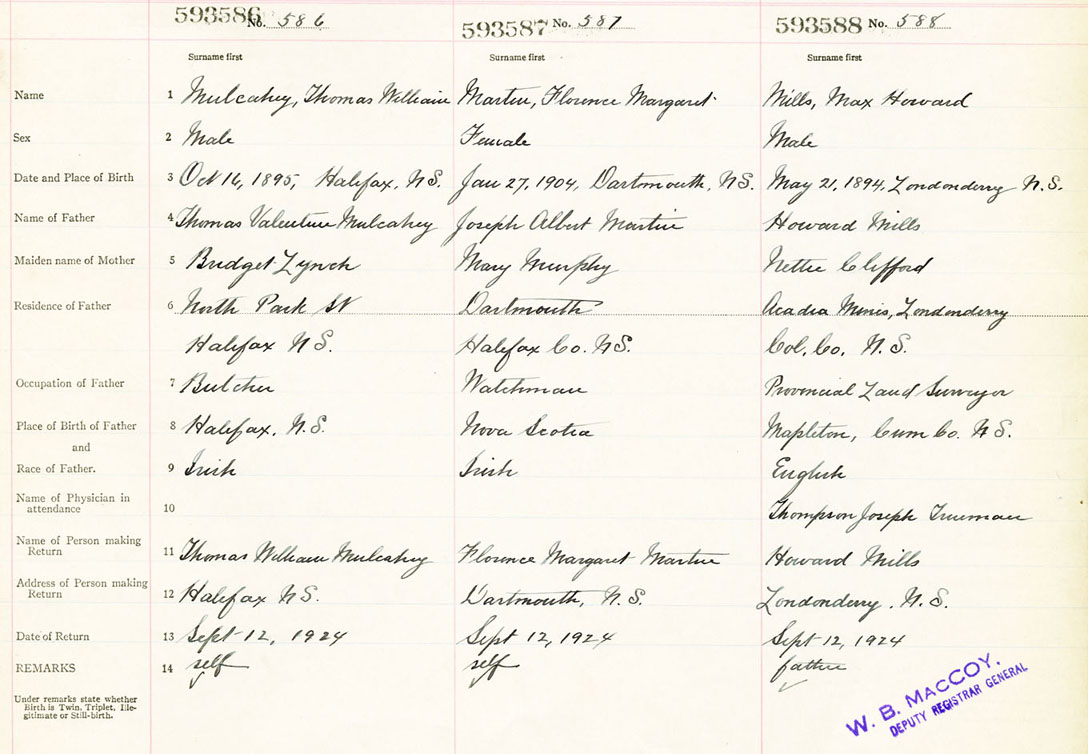 593586 No. 586 593587 No. 587 593588 No. 588
Surname first Surname first Surname first
Name 1 Mulcahey, Thomas William Martin, Florence Margaret Mills, Max Howard
Sex 2 Male Female Male
Date and Place of Birth 3 Oct 16, 1895, Halifax, N.S. Jan 27, 1904, Dartmouth, N.S. May 21, 1894, Londonderry N.S.
Name of Father 4 Thomas Valentine Mulcahey Joseph Albert Martin Howard Mills
Maiden name of Mother 5 Bridget Lynch Mary Murphy Nettie Clifford
Residence of Father 6 North Park St Dartmouth Acadia Mines, Londonderry
Halifax N.S. Halifax Co. N.S. Col. Co. N.S.
Occupation of Father 7 Butcher Watchman Provincial Land Surveyor
Place of Birth of Father 8 Halifax, N.S. Nova Scotia Mapleton, Cum Co. N.S.
and
Race of Father. 9 Irish Irish English
Name of Physician in
attendance 10 Thompson Joseph Trueman
Name of Person making
Return 11 Thomas William Mulcahey Florence Margaret Martin Howard Mills
Address of Person making
Return 12 Halifax N.S. Dartmouth, N.S. Londonderry. N.S.
Date of Return 13 Sept 12, 1924 Sept 12, 1924 Sept 12, 1924
REMARKS 14 self self father
Under remarks state whether
Birth is Twin, Triplet, Ille-
gitimate or Still-birth.
W. B. MACCOY,
DEPUTY REGISTRAR GENERAL